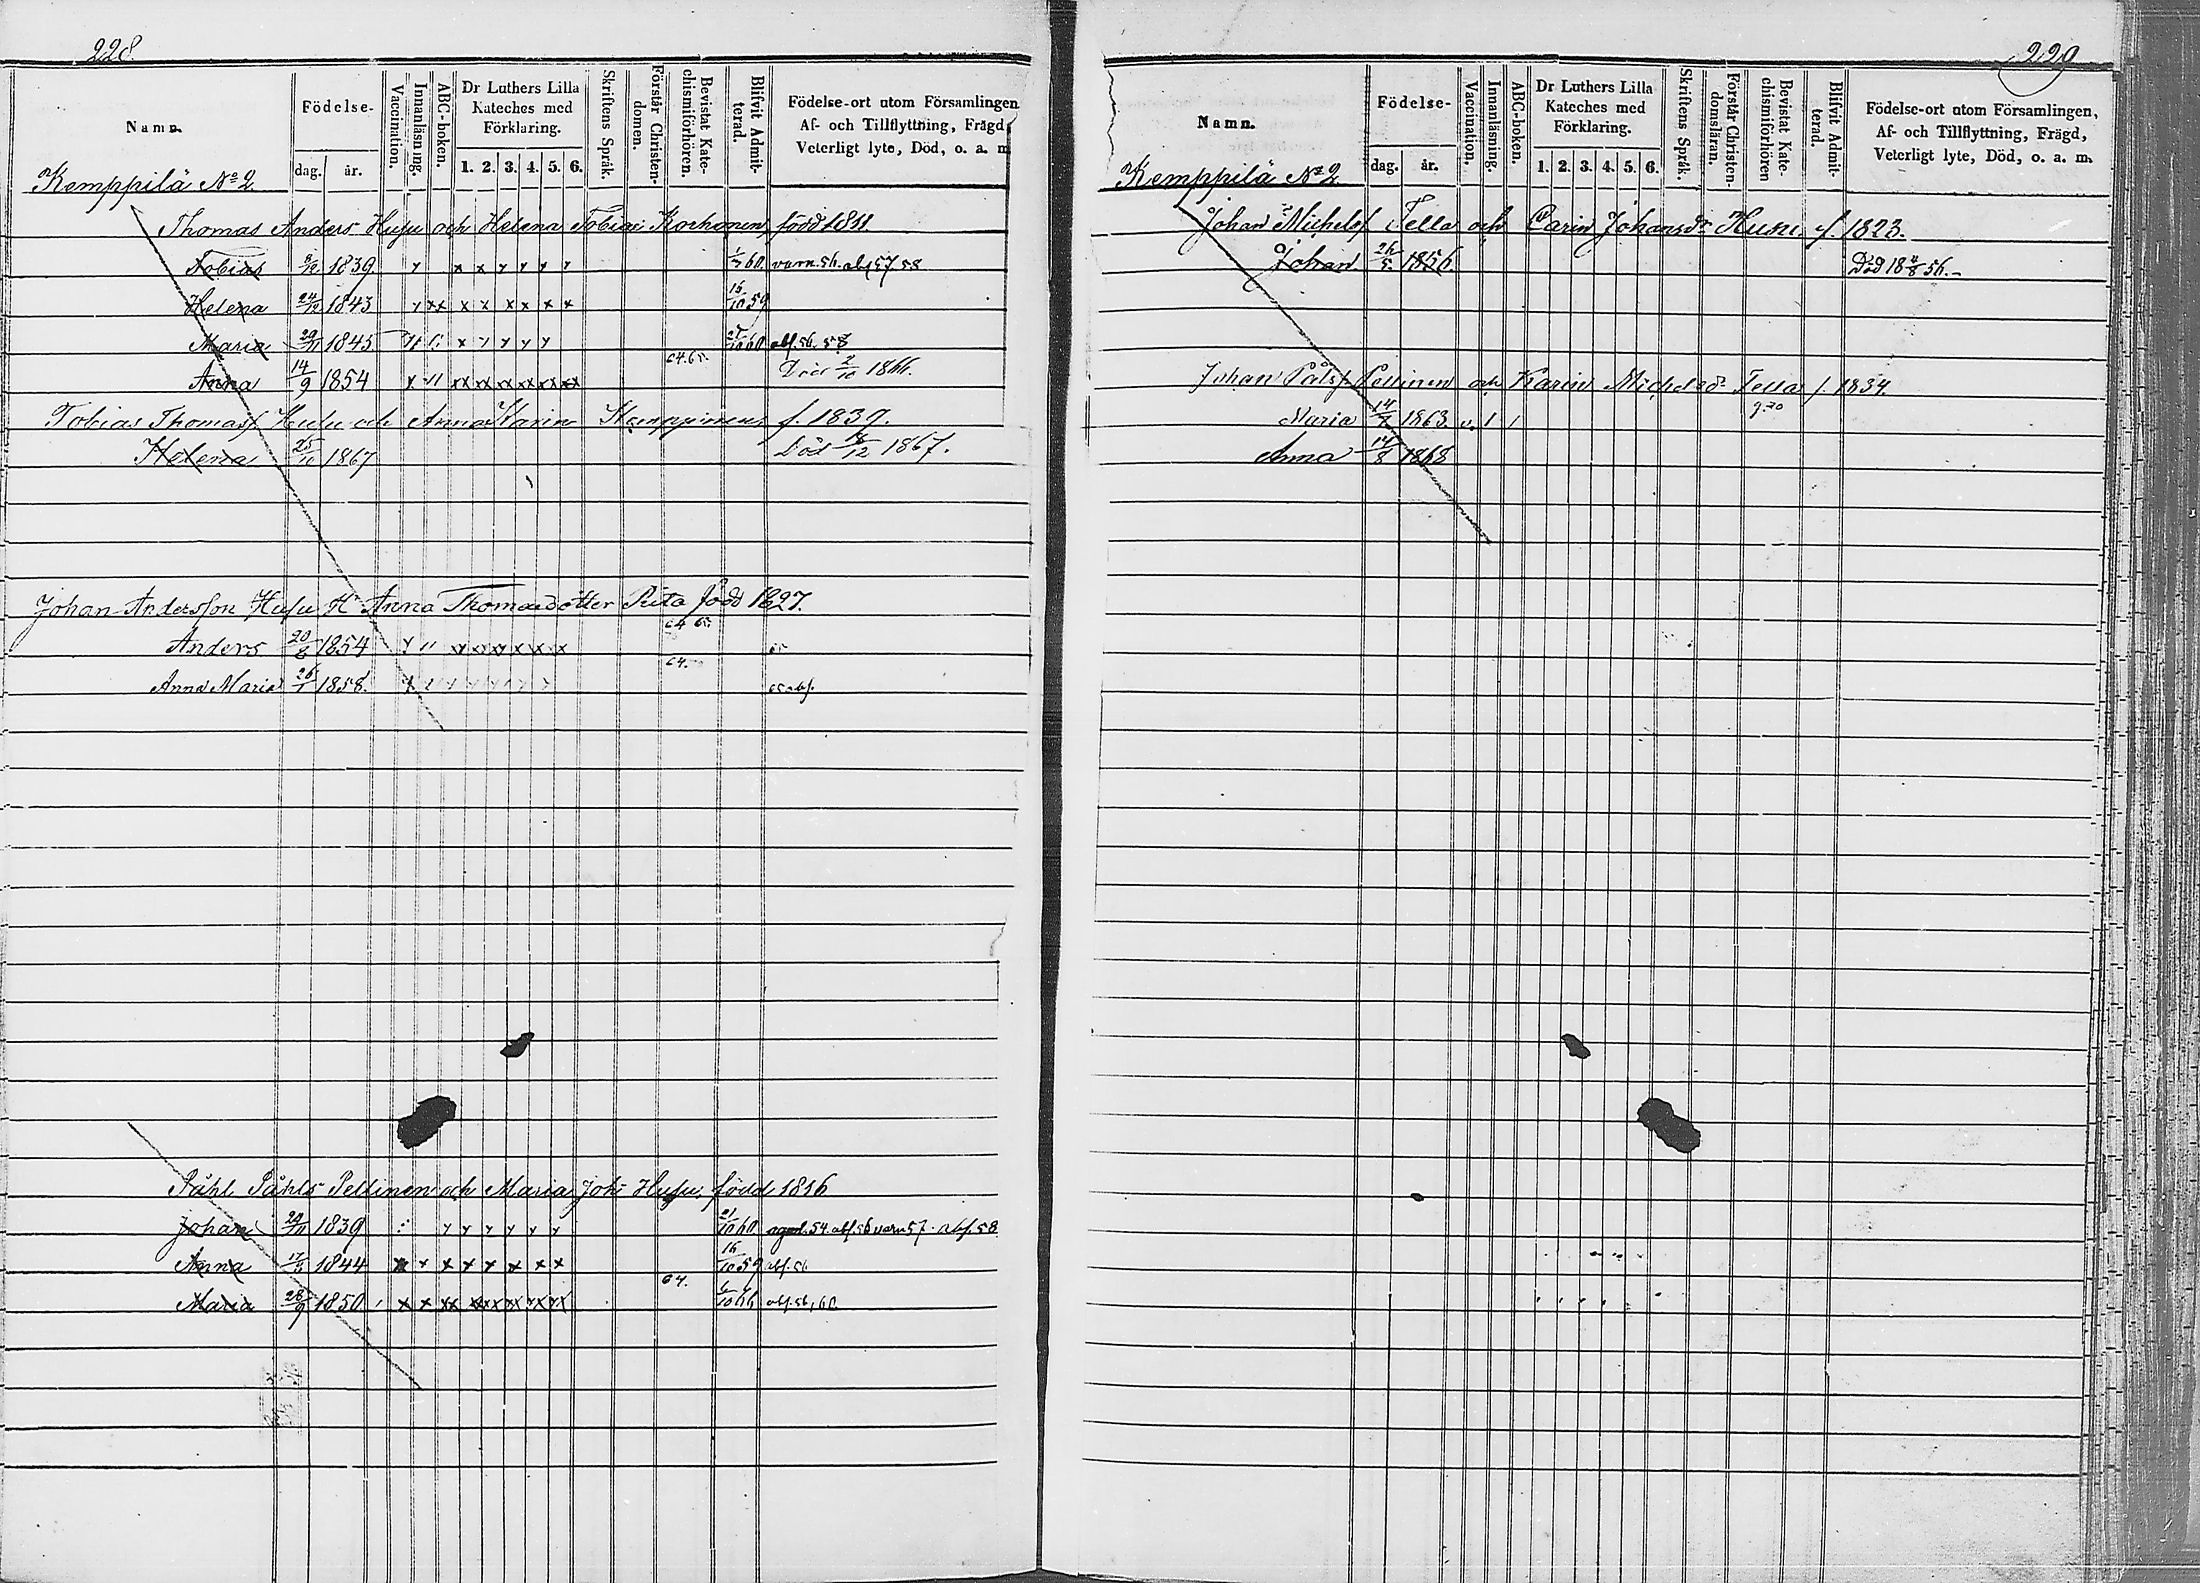 228.
Namn.
Födelse-
dag. år.
Vaccination.
Innanläsning.
ABC-boken.
Dr Luthers Lilla
Kateches med
Förklaring.
1. 2. 3. 4. 5. 6.
Skriftens Språk.
Förstår Christen-
domen.
Bevistat Kate-
chismiförhören.
Blifvit Admit-
terad.
Födelse-ort utom Församlingen
Af- och Tillflyttning, Frägd,
Veterligt lyte, Död, o. a. m
Kemppilä No 2
Thomas Anders Husu och Helena Tobiae Korhonen född 1811.
Tobias 1839 60 varn. 56. abs 57. 58
Helena 24/12 1843 16/10 59
Maria 1845 60 abs. 56. 58
Anna 14/9 1854 64. 65. Död 2/10 1866.
Tobias Thomass Husu och Anna Karin Kemppinen f. 1839.
Helena 25/10 1867 Död 18/12 1867.
Johan Andersson Husu H Anna Thomasdotter Pieta född 1827.
64 65.
Anders 20/8 1854
64.
Anna Maria 26/1 1858. 65 abs.
Påhl Påhls Pellinen och Maria Joh: Husu, född 1816
Johan 1839 21/10 60 54. abs. 56 varn 57. abs. 58
Anna 17/3 1844 16/10 59 abs. 56
64.
Maria 28/9 1850 66 abs. 56, 60.
229
Namn.
Födelse-
dag. år.
Vaccination.
Innanläsning.
ABC-boken.
Dr Luthers Lilla
Kateches med
Förklaring.
1. 2. 3. 4. 5. 6.
Skriftens Språk.
Förstår Christen-
domsläran.
Bevistat Kate-
chismiförhören
Blifvit Admit-
terad.
Födelse-ort utom Församlingen,
Af- och Tillflyttning, Frägd,
Veterligt lyte, Död, o. a. m.
Kemppilä No 2
Johan Michelss Tella och Carin Johansdr Husu f. 1823.
Johan 26/5 1856. Död 18 11/8 56.
Johan Pålss Pellinen och Karin Michelsd. Tella f. 1834.
Maria 14/7 1863 v. 1 1
Anna 14/8 1868